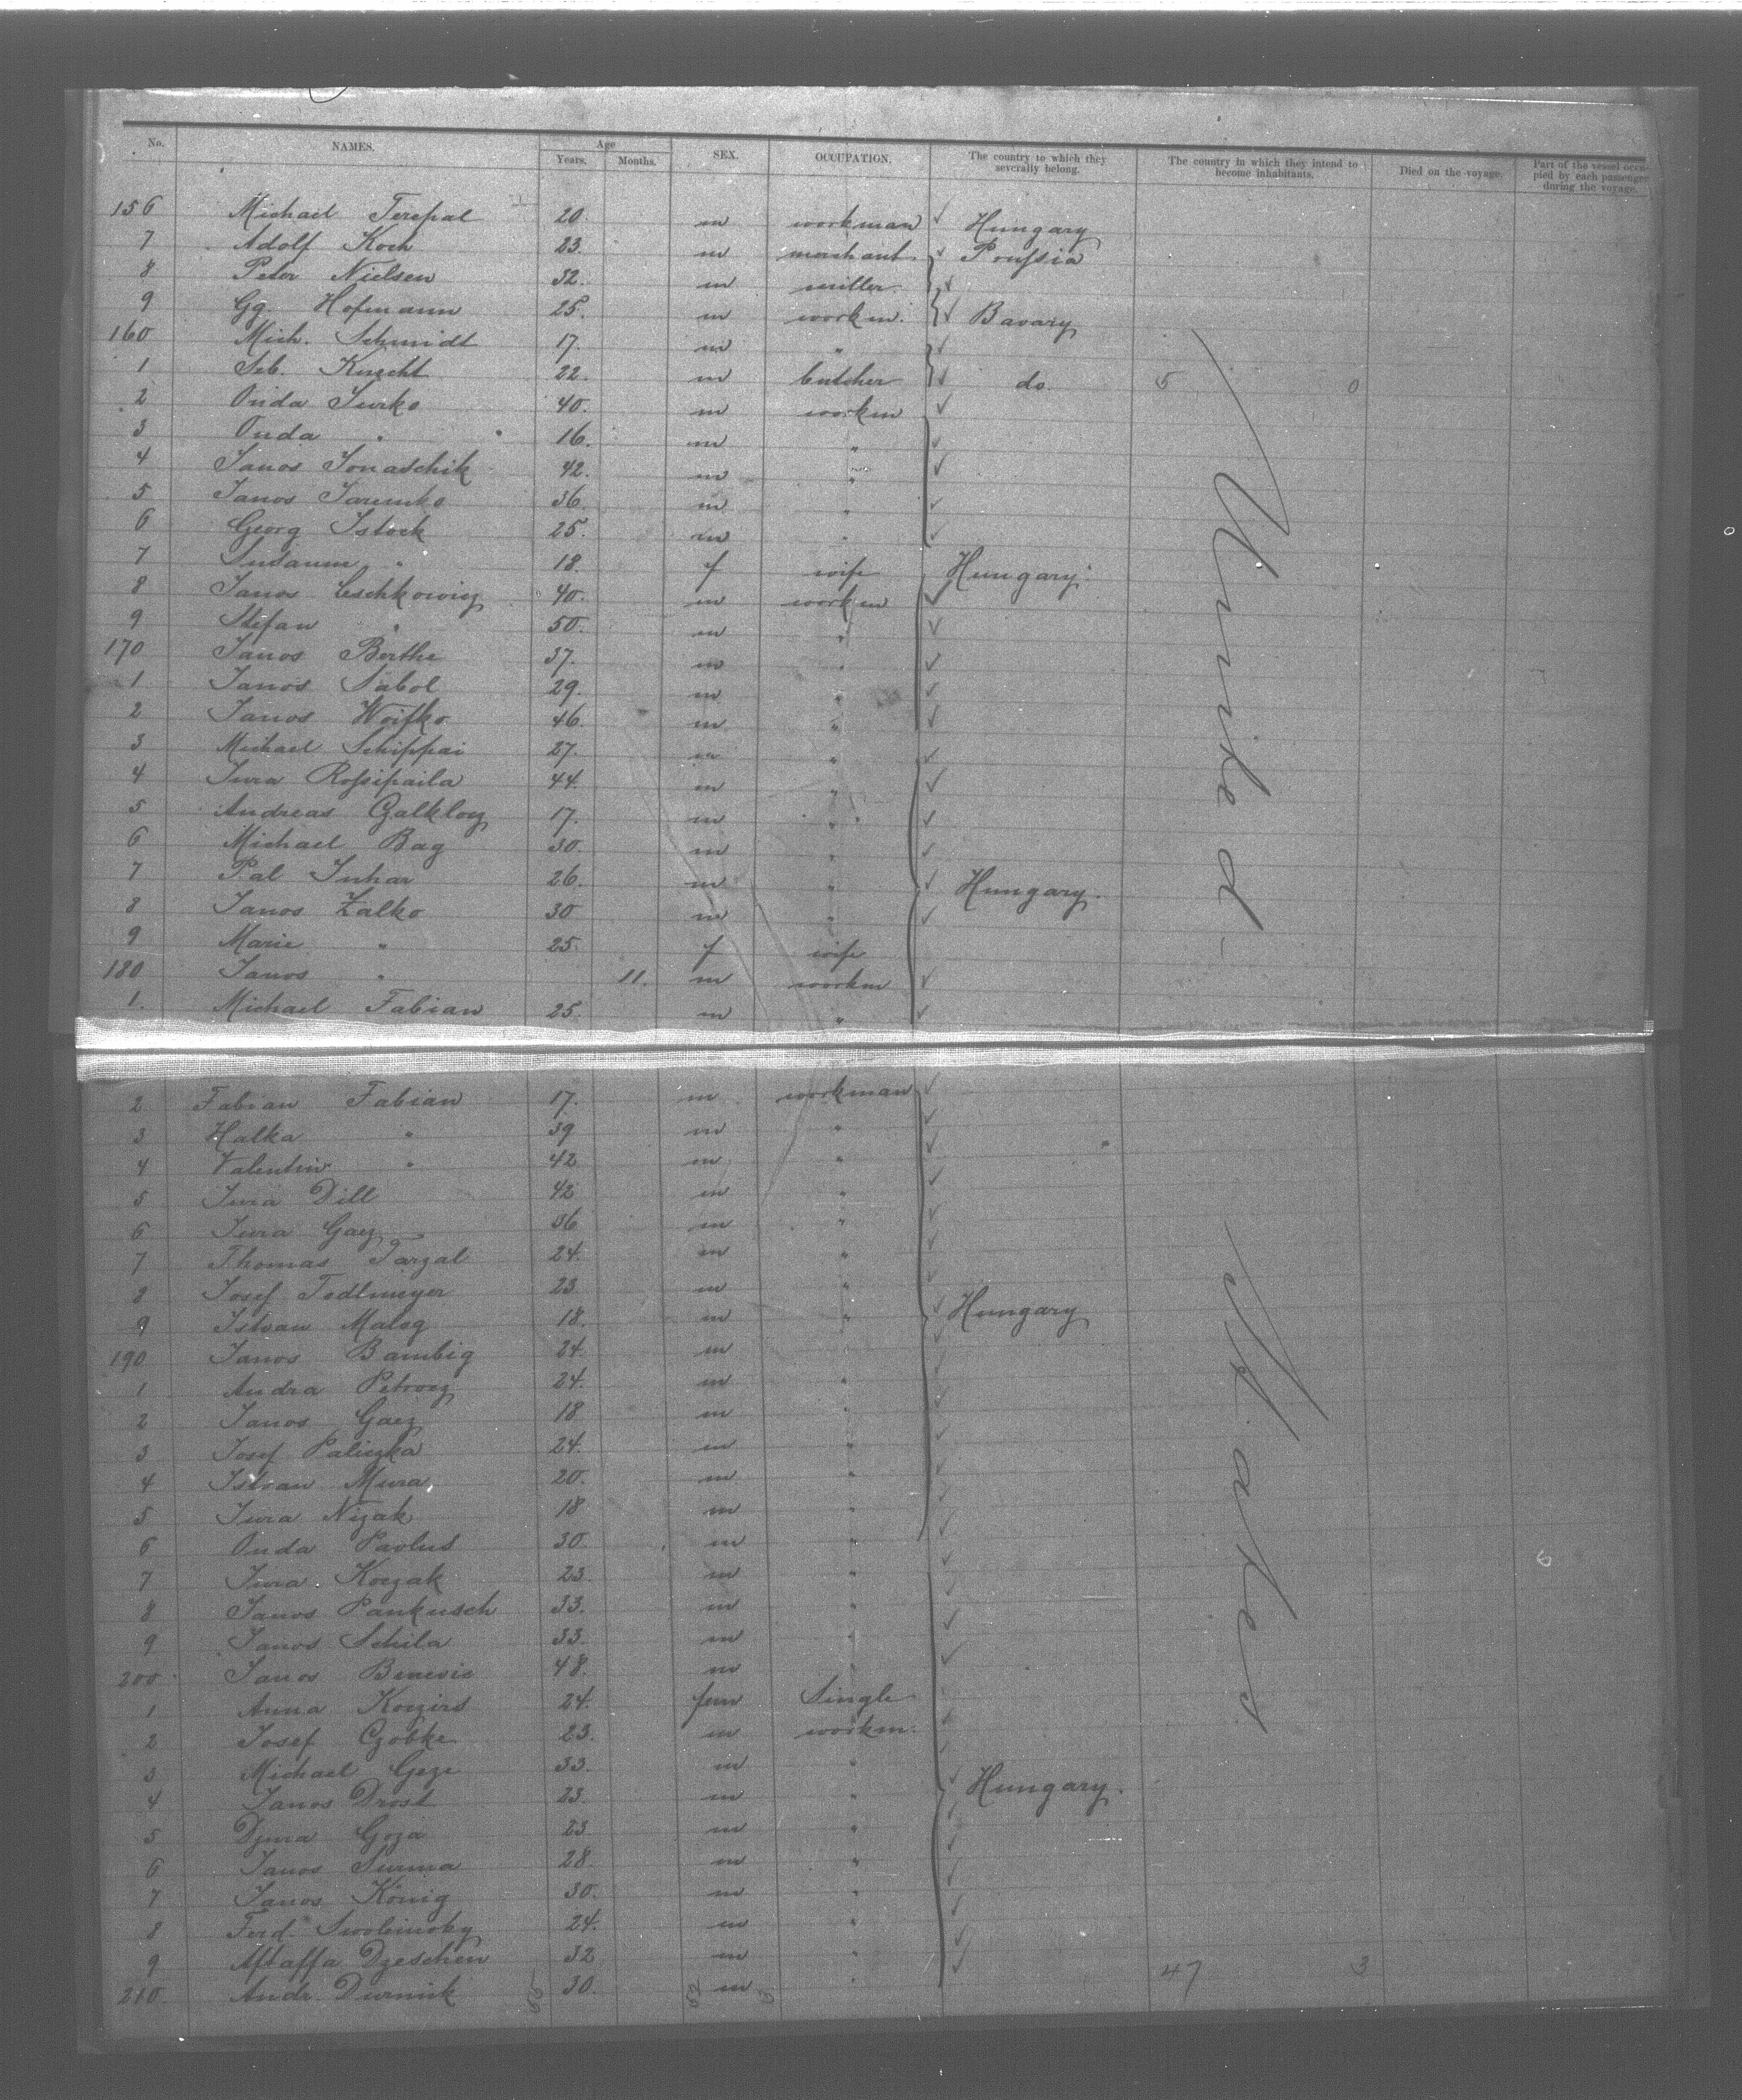 No. NAMES. Age Years. Months. SEX. OCCUPATION. The country to which they severally belong. The country in which they intend to become inhabitants. Died on the voyage. Part of the vessel occupied by each passenger during the voyage.
156 Michael Terepal 20. m workman Hungary
7 Adolf Koch 23. m merchant Prussia
8 Peter Nielsen 32. m miller
9 Gg. Hofmann 25. m workm. Bavary
160 Mich. Schmidt 17. m "
1 Seb. Knecht 22. m butcher do. 5 0
2 Onda Jurko 40. m workm
3 Onda " 16. m "
4 Janos Jonaschik 42. m "
5 Janos Jaremko 36. m "
6 Georg Istock 25. m "
7 Susanna " 18. f wife Hungary
8 Janos Leschkowicz 40. m workm
9 Stefan " 50. m "
170 Janos Berthe 37. m "
1 Janos Sabol 29. m "
2 Janos Woifko 46. m "
3 Michael Schippai 27. m "
4 Jura Rossipaila 44. m "
5 Andreas Galkloez 17. m "
6 Michael Bag 30. m "
7 Pal Juhar 26. m " Hungary.
8 Janos Zalko 30 m "
9 Marie " 25. f wife
180 Janos " 11. m workm
1. Michael Fabian 25. m "
United
2 Fabian Fabian 17. m workman
3 Halka " 39 m "
4 Valentin " 42 m "
5 Jura Dill 42 m "
6 Jura Gaez 36 m "
7 Thomas Tarzal 24. m "
8 Josef Tedlmeyer 23 m "
9 Istvan Malog 18. m " Hungary
190 Janos Bambig 24. m "
1 Andra Petroez 24. m "
2 Janos Gaez 18 m "
3 Josef Paliczka 24. m "
4 Istvan Mura 20. m "
5 Jura Nizak 18 m "
6 Onda Pavlus 30. m "
7 Jura Korzak 23. m "
8 Janos Pankusch 33. m "
9 Janos Schila 33. m "
200 Janos Benesic 48. m "
1 Anna Korzirs 24. fem Single
2 Josef Czobke 23. m workm.
3 Michael Geze 33. m "
4 Janos Drost 23. m " Hungary.
5 Djura Goza 23 m "
6 Janos Surma 28. m "
7 Janos König 30. m "
8 Ferd. 24. m "
9 Dzeschen 32 m "
210 Andr. Durnik 30. m " 47 3
States